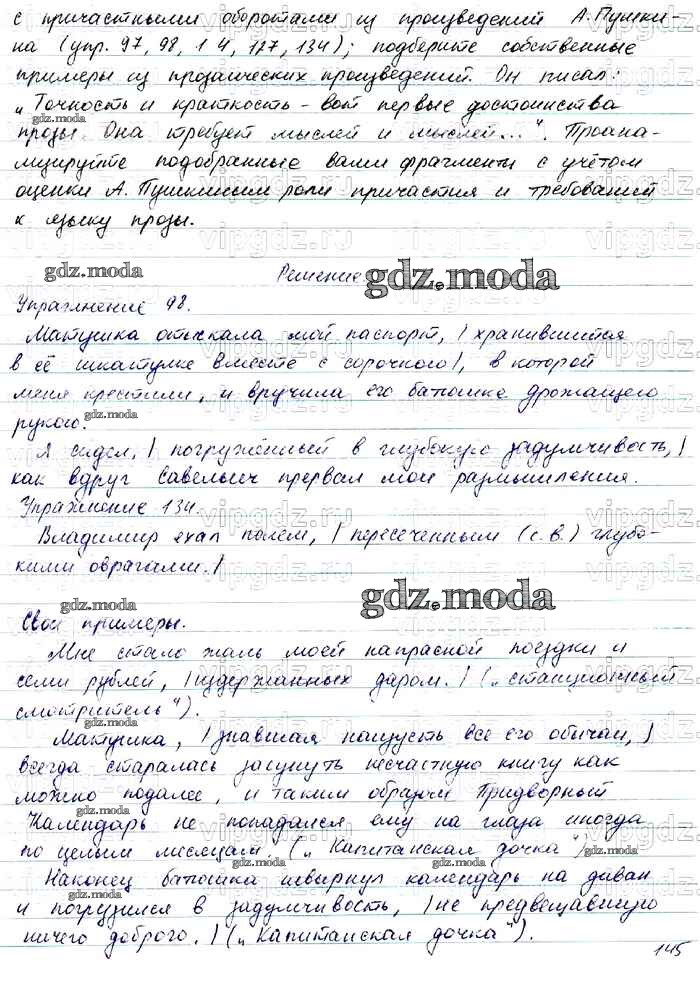 с причастными оборотами из произведений А. Пушки-
на (упр. 97, 98, 1 4, 127, 134); подберите собственные
примеры из прозаических произведений. Он писал:
„Точность и краткость – вот первые достоинства
прозы. Она требует мыслей и мыслей...“. Проана-
лизируйте подобранные вами фрагменты с учётом
оценки А. Пушкиным роли причастия и требований
к языку прозы.
Решение
Упражнение 98.
Матушка отыскала мой паспорт, | хранившийся
в её шкатулке вместе с сорочкою |, в которой
меня крестили, и вручила его батюшке дрожащею
рукою.
Я сидел, | погружённый в глубокую задумчивость, |
как вдруг Савельич прервал мои размышления.
Упражнение 134.
Владимир ехал полем, | пересеченным (с.в.) глубо-
кими оврагами. |
Свои примеры.
Мне стало жаль моей напрасной поездки и
семи рублей, | издержанных даром. | („Станционный
смотритель“).
Матушка, | знавшая наизусть все его обычаи, |
всегда старалась засунуть несчастную книгу как
можно подалее, и таким образом Придворный
Календарь не попадался ему на глаза иногда
по целым месяцам. („Капитанская дочка“)
Наконец батюшка швырнул календарь на диван
и погрузился в задумчивость, | не предвещавшую
ничего доброго. | („Капитанская дочка“).
145
gdz.moda
vipgdz.ru